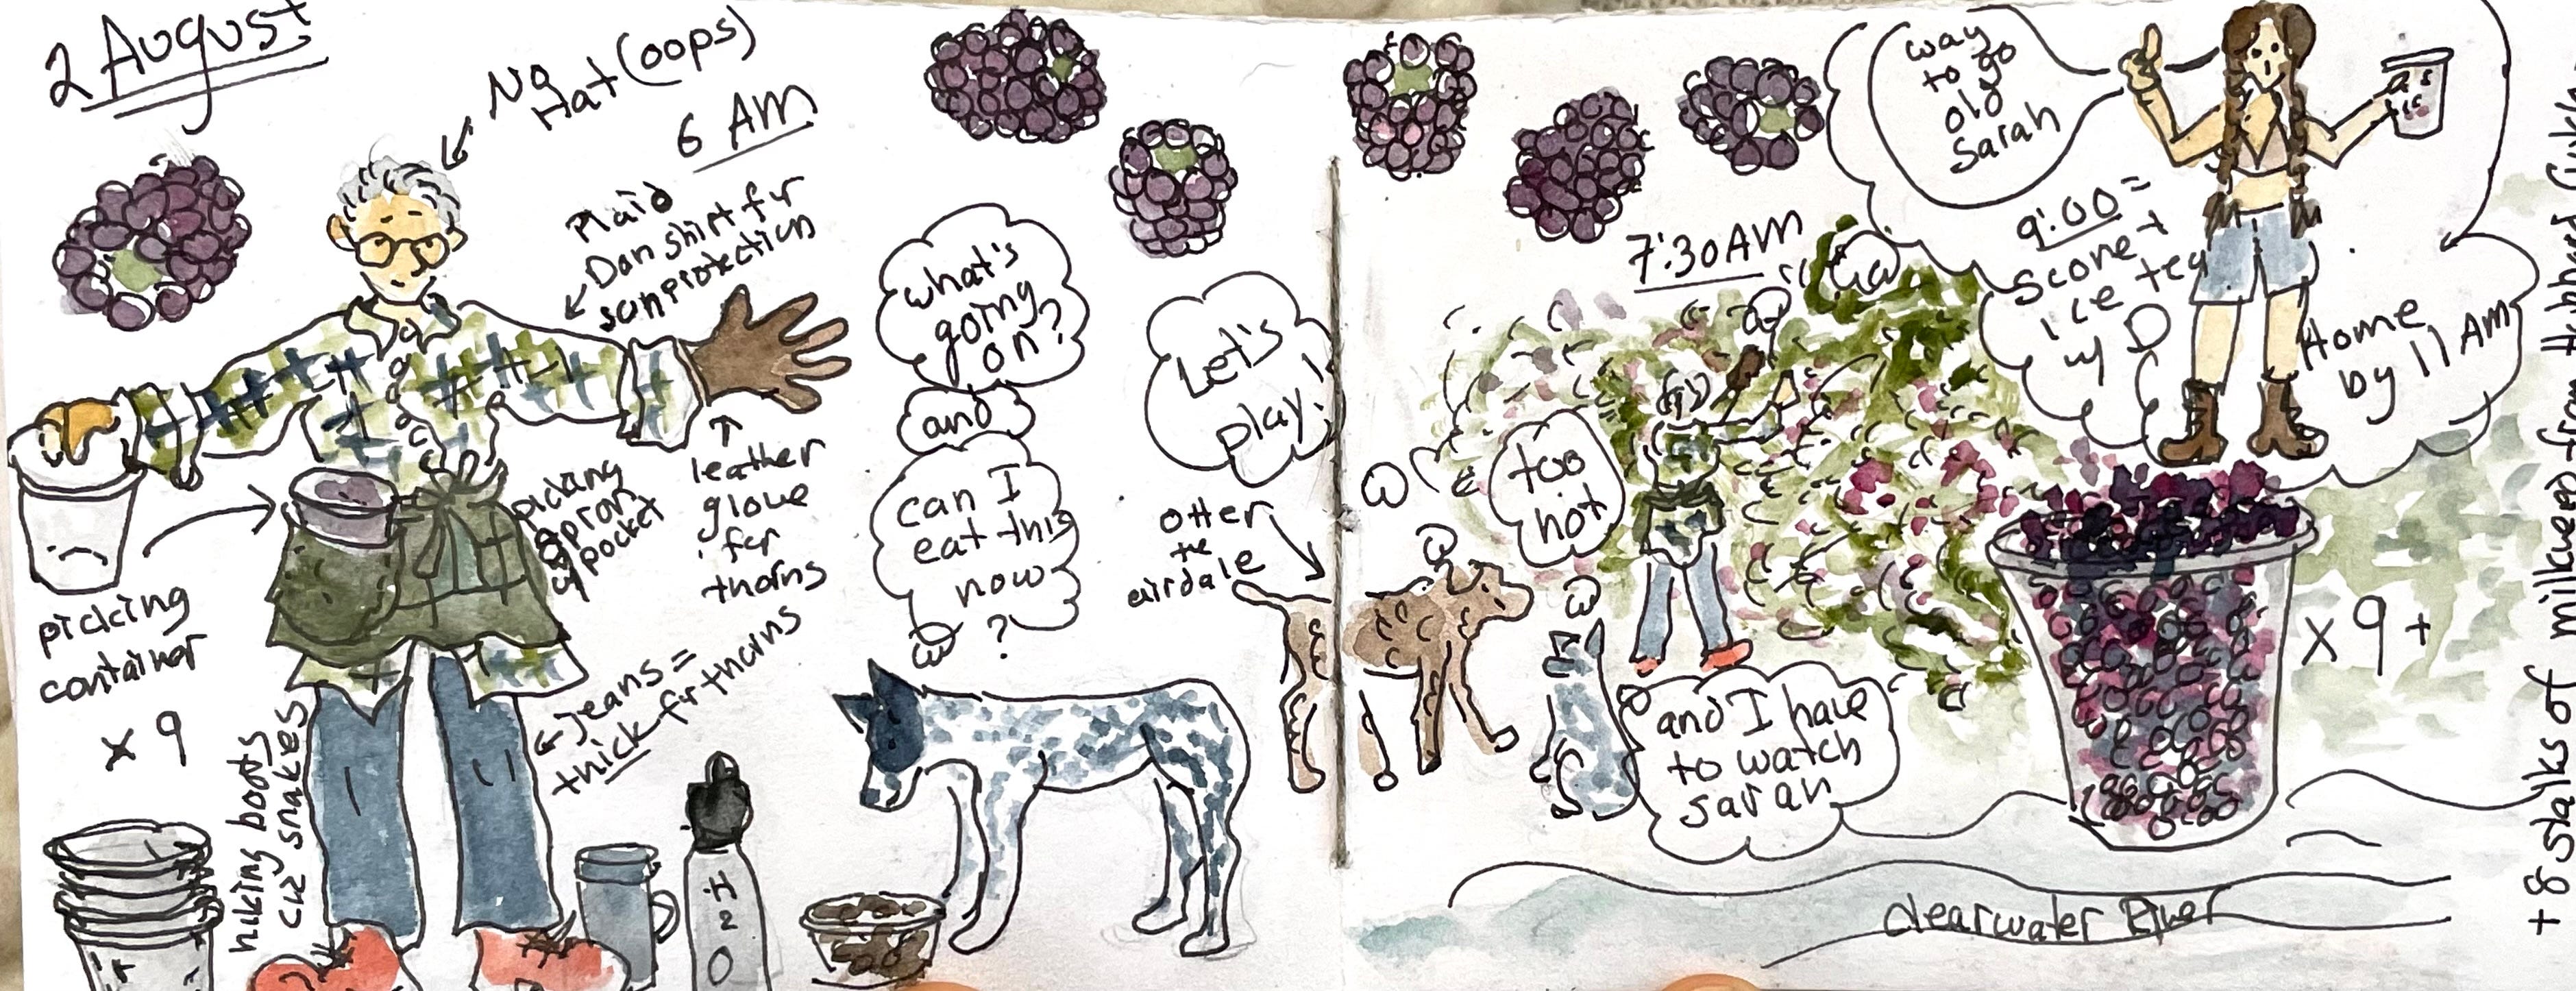 2 August
No
Hat (oops)
6 AM
Plaid
Dan shirt for
sun protection
leather
glove
for
thorns
picking
apron
w/ pocket
picking
container
x 9
hiking boots
cuz snakes
jeans =
thick for thorns
H
2
O
what's
going
on?
and
can I
eat this
now
?
Let's
play!
otter
the
airdale
7:30 AM
too
hot
and I have
to watch
Sarah
way
to go
old
Sarah
9:00 =
scone +
ice tea
w/ D
Home
by 11 AM
x 9+
Clearwater River
+ 8 stalks of milkweed from